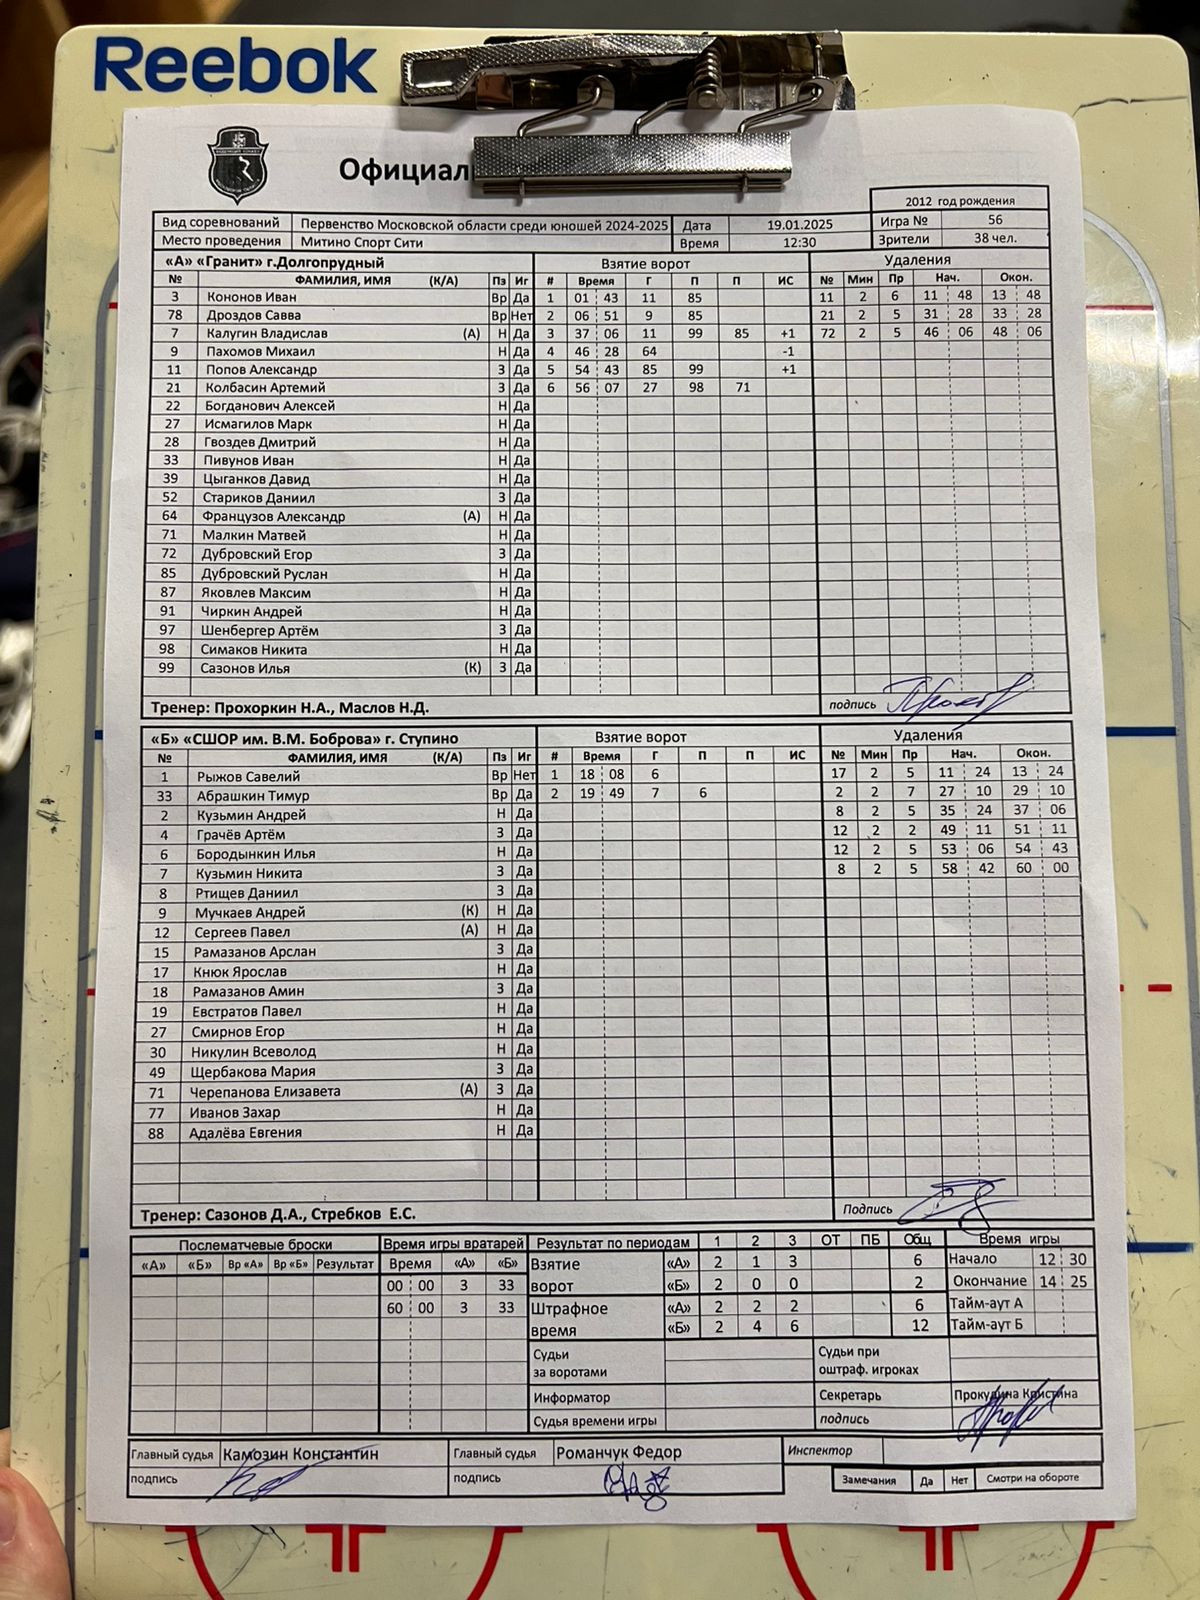 Reebok
Официал
2012 год рождения
Вид соревнований Первенство Московской области среди юношей 2024-2025 Дата 19.01.2025 Игра № 56
Место проведения Митино Спорт Сити Время 12:30 Зрители 38 чел.
«А» «Гранит» г.Долгопрудный Взятие ворот Удаления
№ ФАМИЛИЯ, ИМЯ (К/А) Пз Иг # Время Г П П ИС № Мин Пр Нач. Окон.
3 Кононов Иван Вр Да 1 01 43 11 85 11 2 6 11 48 13 48
78 Дроздов Савва Вр Нет 2 06 51 9 85 21 2 5 31 28 33 28
7 Калугин Владислав (А) Н Да 3 37 06 11 99 85 +1 72 2 5 46 06 48 06
9 Пахомов Михаил Н Да 4 46 28 64 -1
11 Попов Александр З Да 5 54 43 85 99 +1
21 Колбасин Артемий З Да 6 56 07 27 98 71
22 Богданович Алексей Н Да
27 Исмагилов Марк Н Да
28 Гвоздев Дмитрий Н Да
33 Пивунов Иван Н Да
39 Цыганков Давид Н Да
52 Стариков Даниил З Да
64 Французов Александр (А) Н Да
71 Малкин Матвей Н Да
72 Дубровский Егор З Да
85 Дубровский Руслан Н Да
87 Яковлев Максим Н Да
91 Чиркин Андрей Н Да
97 Шенбергер Артём З Да
98 Симаков Никита Н Да
99 Сазонов Илья (К) З Да
Тренер: Прохоркин Н.А., Маслов Н.Д. подпись
«Б» «СШОР им. В.М. Боброва» г. Ступино Взятие ворот Удаления
№ ФАМИЛИЯ, ИМЯ (К/А) Пз Иг # Время Г П П ИС № Мин Пр Нач. Окон.
1 Рыжов Савелий Вр Нет 1 18 08 6 17 2 5 11 24 13 24
33 Абрашкин Тимур Вр Да 2 19 49 7 6 2 2 7 27 10 29 10
2 Кузьмин Андрей Н Да 8 2 5 35 24 37 06
4 Грачёв Артём З Да 12 2 2 49 11 51 11
6 Бородынкин Илья Н Да 12 2 5 53 06 54 43
7 Кузьмин Никита З Да 8 2 5 58 42 60 00
8 Ртищев Даниил З Да
9 Мучкаев Андрей (К) Н Да
12 Сергеев Павел (А) Н Да
15 Рамазанов Арслан З Да
17 Кнюк Ярослав Н Да
18 Рамазанов Амин З Да
19 Евстратов Павел Н Да
27 Смирнов Егор Н Да
30 Никулин Всеволод Н Да
49 Щербакова Мария З Да
71 Черепанова Елизавета (А) З Да
77 Иванов Захар Н Да
88 Адалёва Евгения Н Да
Тренер: Сазонов Д.А., Стребков Е.С. Подпись
Послематчевые броски Время игры вратарей Результат по периодам 1 2 3 ОТ ПБ Общ Время игры
«А» «Б» Вр «А» Вр «Б» Результат Время «А» «Б» Взятие «А» 2 1 3 6 Начало 12 30
00 00 3 33 ворот «Б» 2 0 0 2 Окончание 14 25
60 00 3 33 Штрафное «А» 2 2 2 6 Тайм-аут А
время «Б» 2 4 6 12 Тайм-аут Б
Судьи Судьи при
за воротами оштраф. игроках
Информатор Секретарь Прокудина Кристина
Судья времени игры подпись
Главный судья Камозин Константин Главный судья Романчук Федор Инспектор
подпись подпись Замечания Да Нет Смотри на обороте